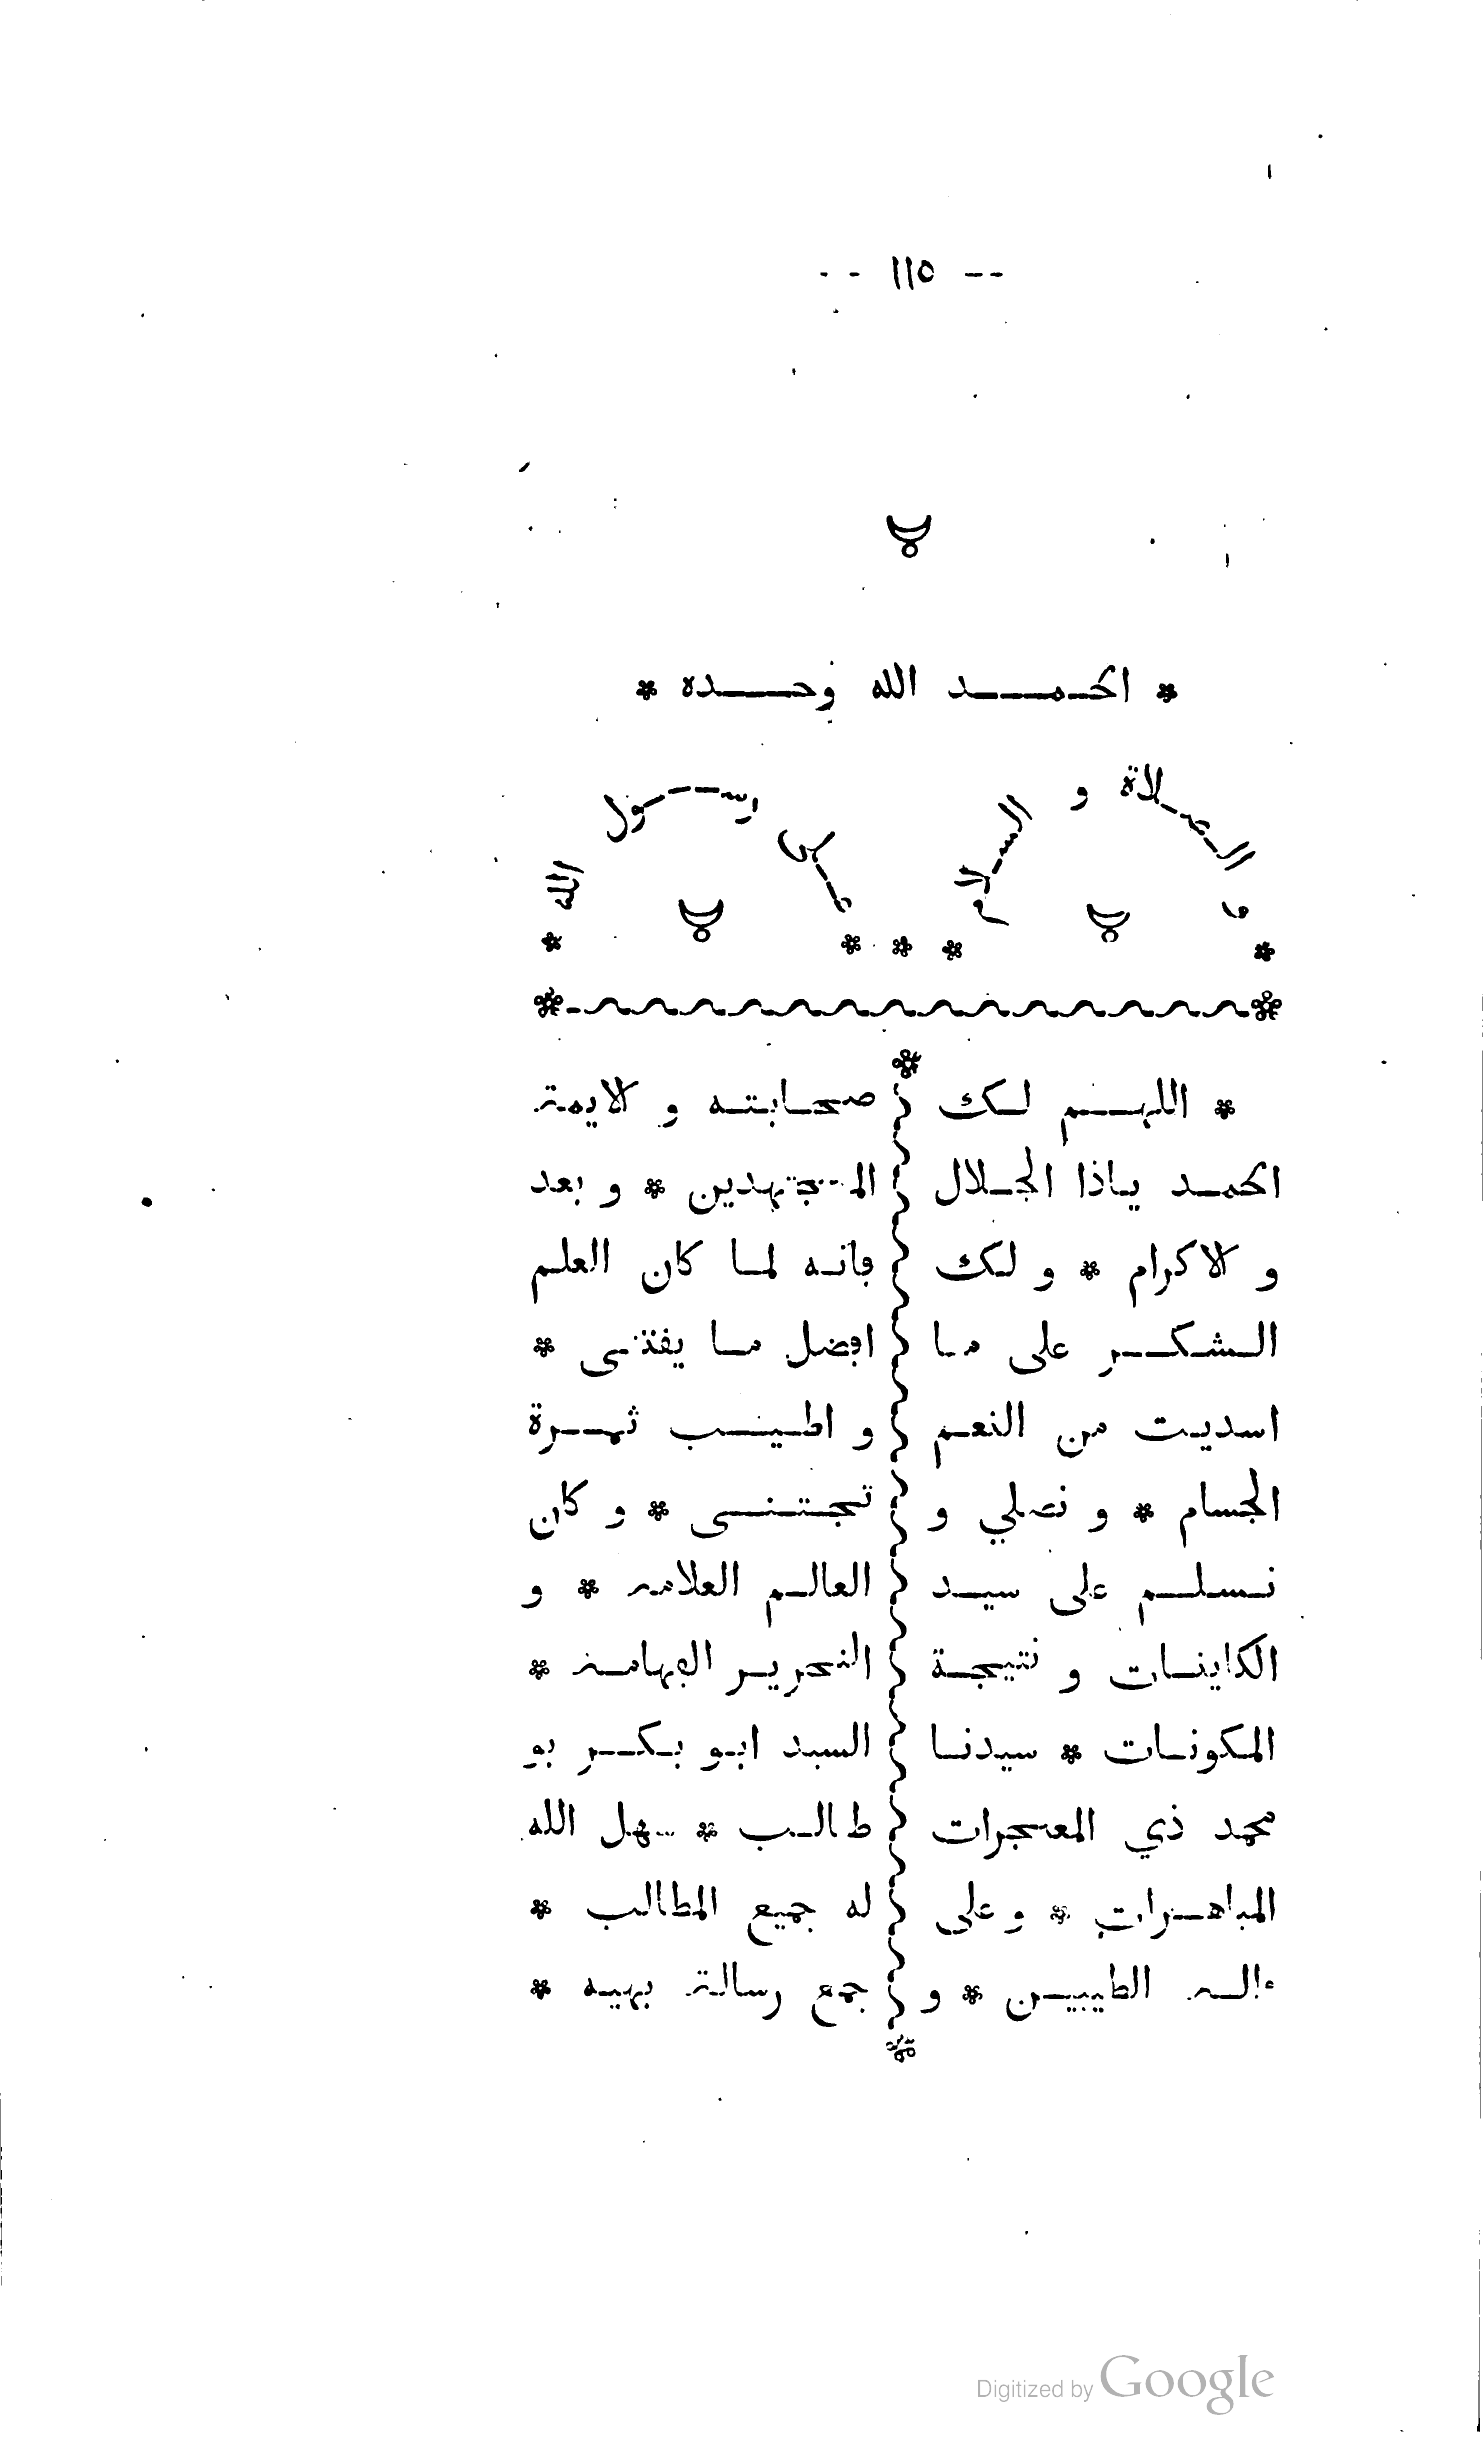 -- ١١٥ --
* الحمد الله وحده *
و الصلاة و السلام على رسول الله
* اللهم لك
الحمد ياذا الجلال
و الاكرام * و لك
الشكر على ما
اسديت من النعم
الجسام * و نصلي و
نسلم على سيد
الكاينات و نتيجة
المكونات * سيدنا
محمد ذي المعجرات
الباهرات * و على
ءاله الطيبين * و
صحابته و الايمة
المجتهدين * و بعد
ڢانه لما كان العلم
اڢضل ما يفتنى *
و اطيب ثمرة
تجتنى * و كان
العالم العلامه * و
النحرير الڢهامة *
السيد ابو بكر بو
طالب * سهل الله
له جميع المطالب *
جمع رسالة بهيه *
Digitized by Google